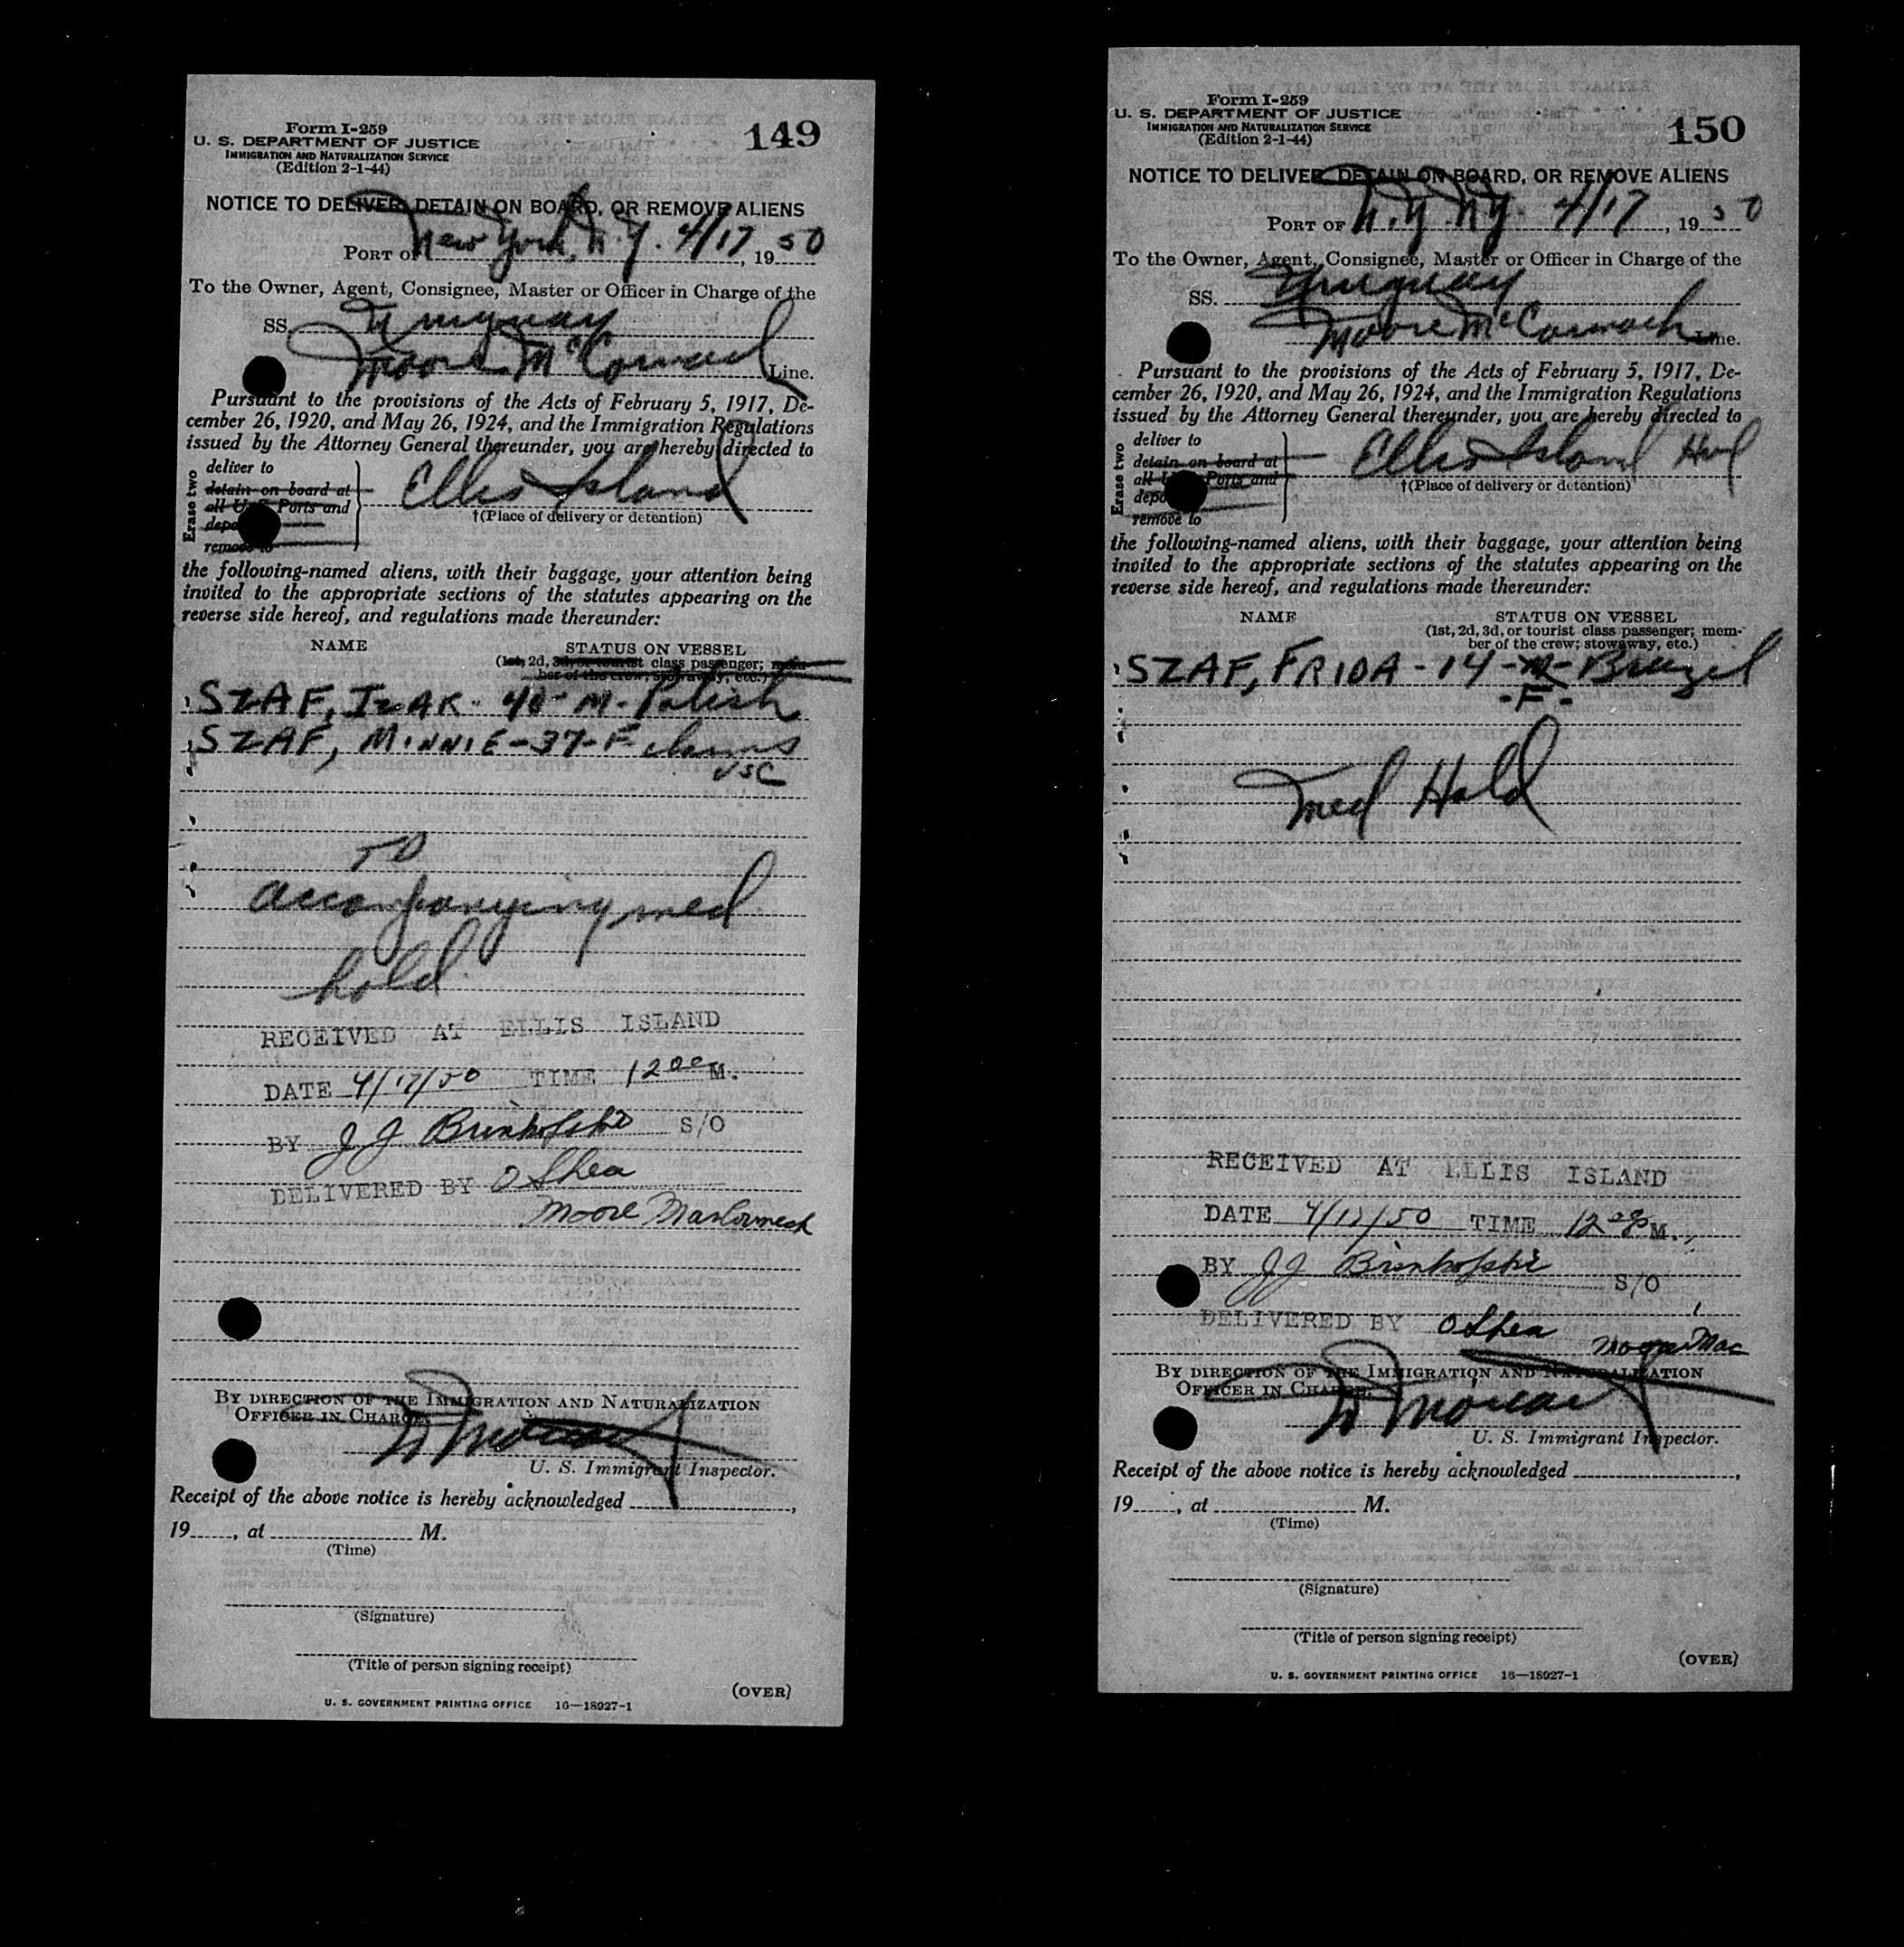 Form I-259
U. S. DEPARTMENT OF JUSTICE
IMMIGRATION AND NATURALIZATION SERVICE
(Edition 2-1-44)
149
NOTICE TO DELIVER, DETAIN ON BOARD, OR REMOVE ALIENS
PORT OF New York, N.Y. 4/17, 1950
To the Owner, Agent, Consignee, Master or Officer in Charge of the
SS. Uruguay
Moore McCormack Line.
Pursuant to the provisions of the Acts of February 5, 1917, De-
cember 26, 1920, and May 26, 1924, and the Immigration Regulations
issued by the Attorney General thereunder, you are hereby directed to
Erase two
deliver to
detain on board at
all U. S. Ports and
remove to
Ellis Island
†(Place of delivery or detention)
the following-named aliens, with their baggage, your attention being
invited to the appropriate sections of the statutes appearing on the
reverse side hereof, and regulations made thereunder:
NAME STATUS ON VESSEL
(1st, 2d, 3d, or tourist class passenger; mem-
ber of the crew; stowaway, etc.)
SZAF, IZAK - 40 - M - Polish
SZAF, MINNIE - 37 - F claims
USC
TO
accompanying med
hold
RECEIVED AT ELLIS ISLAND
DATE 4/17/50 TIME 12 00 M.
BY J J Brinkofski S/O
DELIVERED BY O Shea
Moore
BY DIRECTION OF THE IMMIGRATION AND NATURALIZATION
OFFICER IN CHARGE:
U. S. Immigrant Inspector.
Receipt of the above notice is hereby acknowledged
19, at M.
(Time)
(Signature)
(Title of person signing receipt)
(OVER)
U. S. GOVERNMENT PRINTING OFFICE 16—18927-1
Form I-259
U. S. DEPARTMENT OF JUSTICE
IMMIGRATION AND NATURALIZATION SERVICE
(Edition 2-1-44)
150
NOTICE TO DELIVER, DETAIN ON BOARD, OR REMOVE ALIENS
PORT OF N.Y. N.Y. 4/17, 1950
To the Owner, Agent, Consignee, Master or Officer in Charge of the
SS. Uruguay
Moore McCormack Line.
Pursuant to the provisions of the Acts of February 5, 1917, De-
cember 26, 1920, and May 26, 1924, and the Immigration Regulations
issued by the Attorney General thereunder, you are hereby directed to
Erase two
deliver to
detain on board at
Ports and
remove to
Ellis Island
†(Place of delivery or detention)
the following-named aliens, with their baggage, your attention being
invited to the appropriate sections of the statutes appearing on the
reverse side hereof, and regulations made thereunder:
NAME STATUS ON VESSEL
(1st, 2d, 3d, or tourist class passenger; mem-
ber of the crew; stowaway, etc.)
SZAF, FRIDA - 14 - M - Brazil
- F -
Med Hold
RECEIVED AT ELLIS ISLAND
DATE 4/17/50 TIME 12 M.
BY J J Brinkofski S/O
DELIVERED BY O Shea Moore Mac
BY DIRECTION OF THE IMMIGRATION AND NATURALIZATION
OFFICER IN CHARGE:
U. S. Immigrant Inspector.
Receipt of the above notice is hereby acknowledged
19, at M.
(Time)
(Signature)
(Title of person signing receipt)
(OVER)
U. S. GOVERNMENT PRINTING OFFICE 16—18927-1